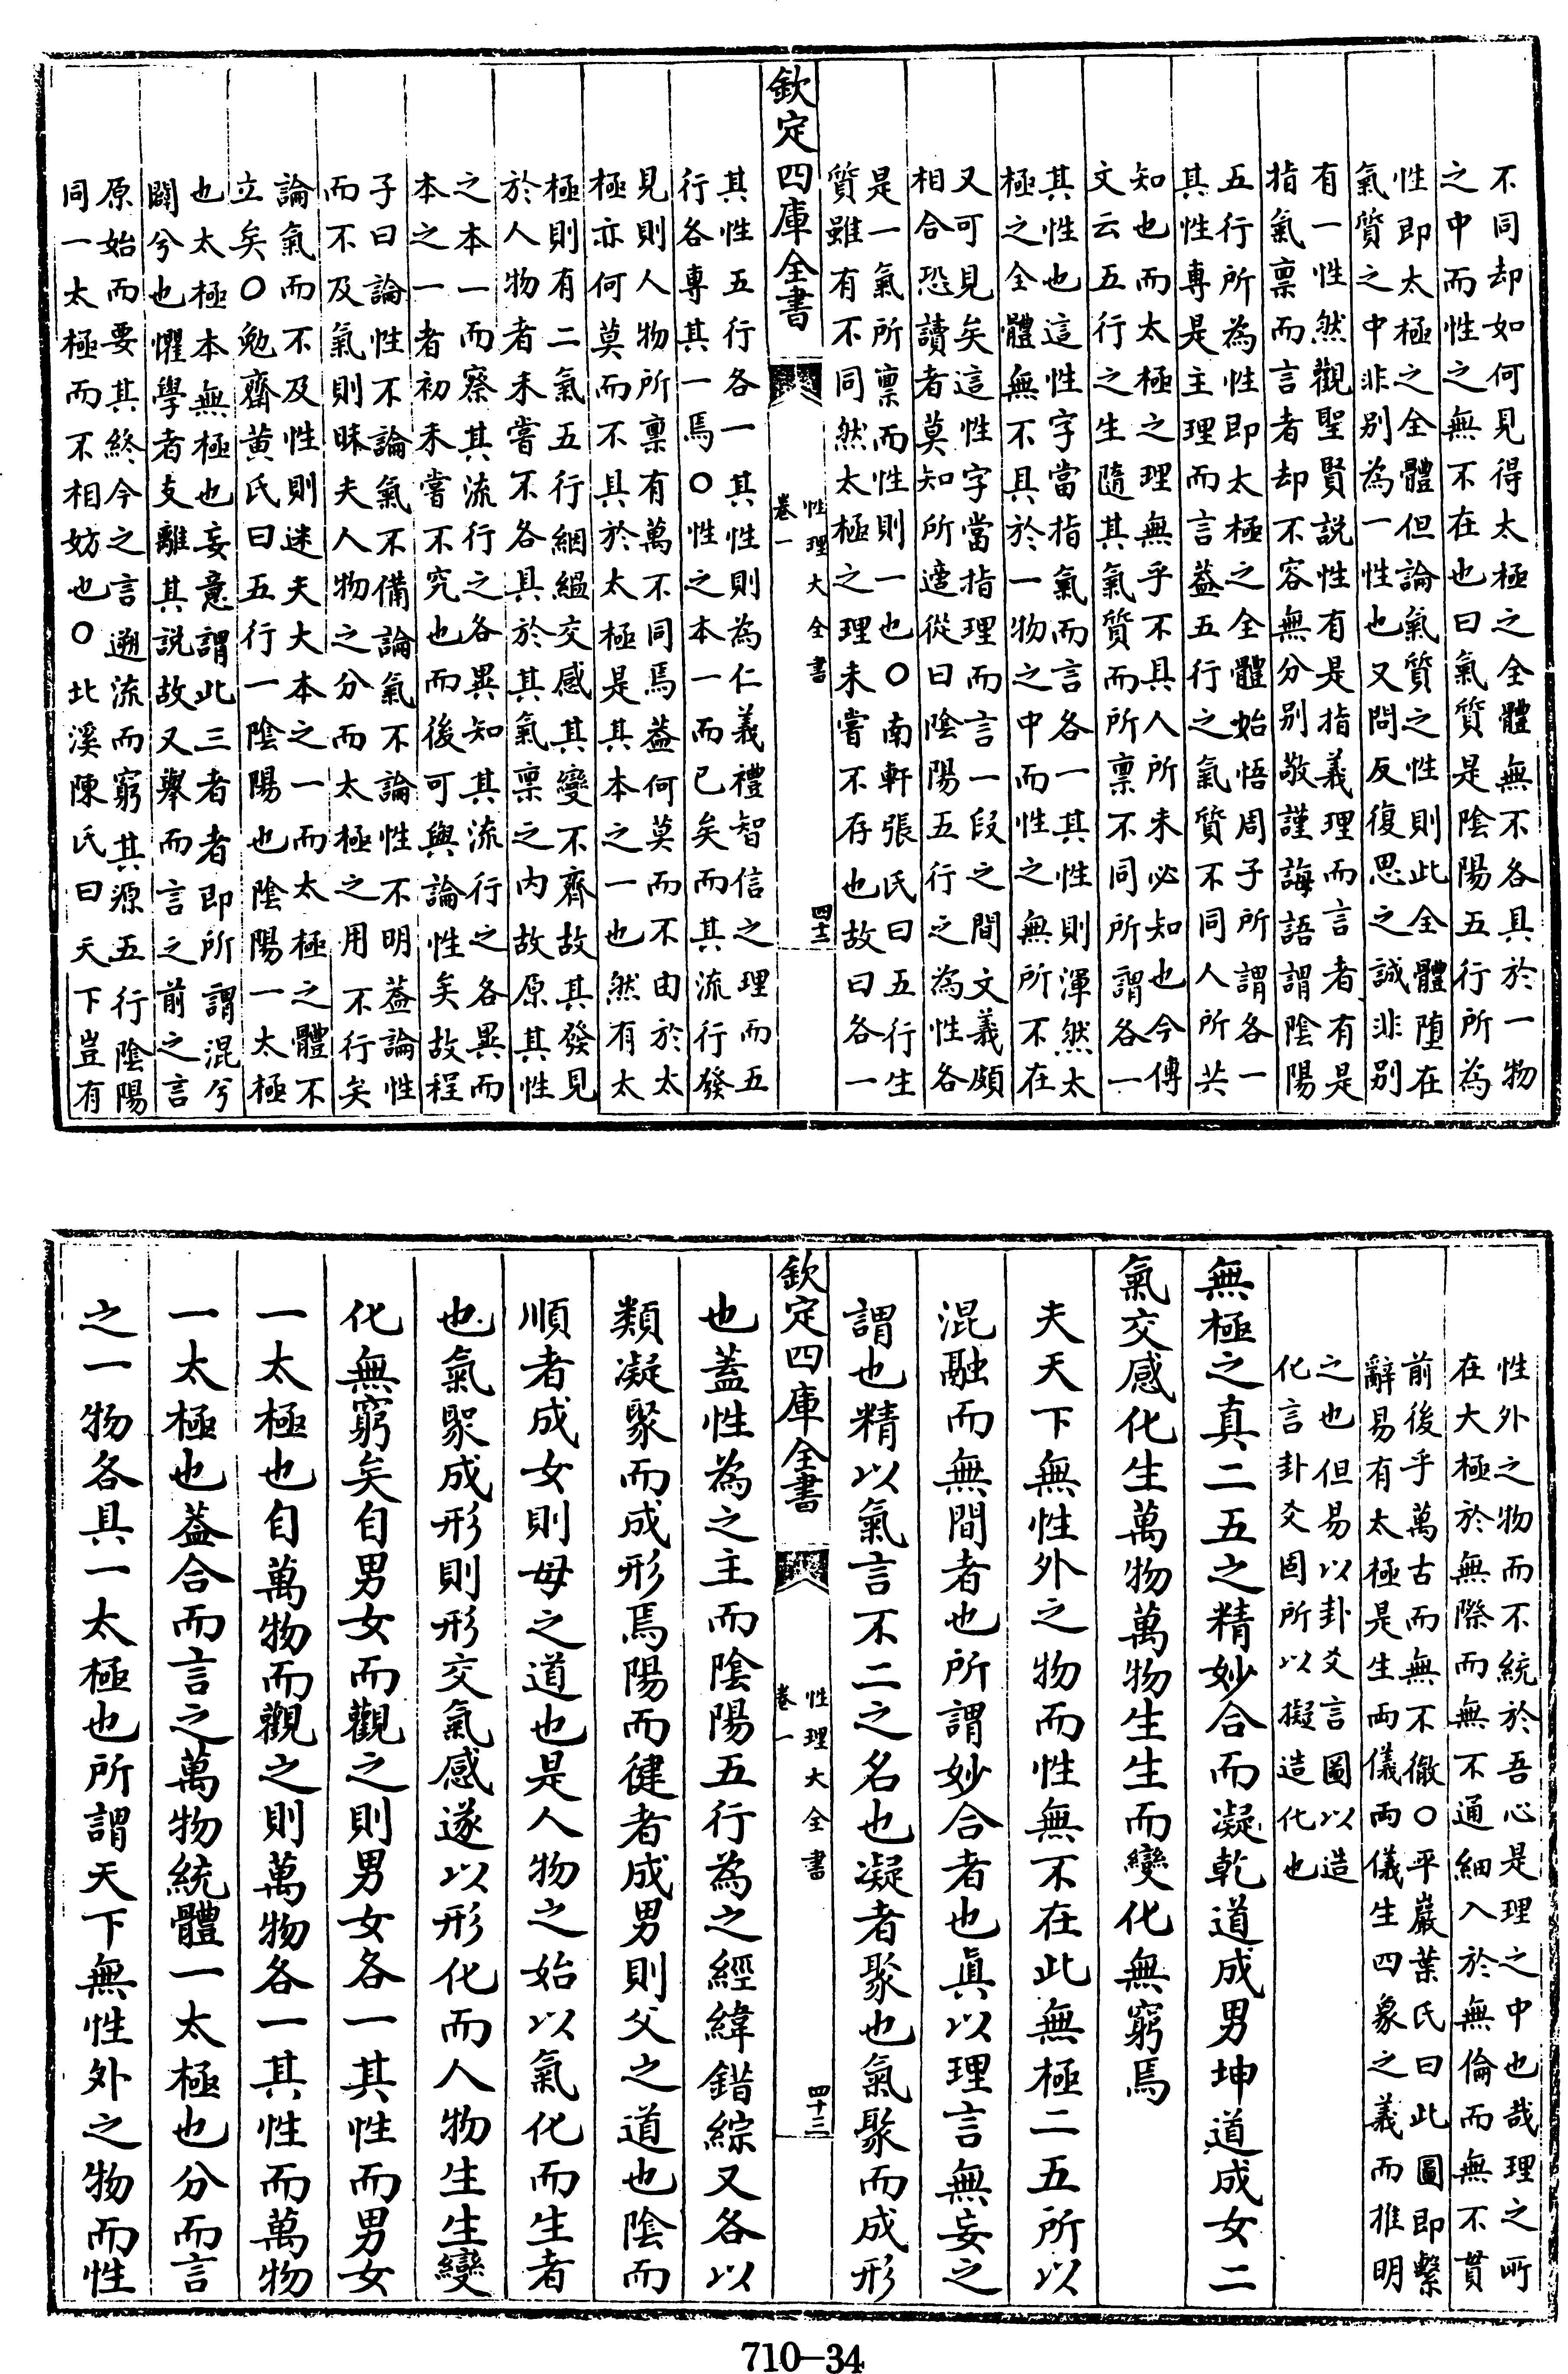 不同却如何見得太極之全體無不各具於一物
之中而性之無不在也曰氣質是陰陽五行所為
性即太極之全體但論氣質之性則此全體墮在
氣質之中非别為一性也又問反復思之誠非别
有一性然觀聖賢説性有是指義理而言者有是
指氣禀而言者却不容無分别敬謹誨語謂陰陽
五行所為性即太極之全體始悟周子所謂各一
其性專是主理而言葢五行之氣質不同人所共
知也而太極之理無乎不具人所未必知也今傳
文云五行之生隨其氣質而所禀不同所謂各一
其性也這性字當指氣而言各一其性則渾然太
極之全體無不具於一物之中而性之無所不在
又可見矣這性字當指理而言一段之間文義頗
相合恐讀者莫知所適從曰陰陽五行之為性各
是一氣所禀而性則一也○南軒張氏曰五行生
質雖有不同然太極之理未嘗不存也故曰各一
欽定四庫全書
性理大全書
卷一
四十二
其性五行各一其性則為仁義禮智信之理而五
行各專其一焉○性之本一而已矣而其流行發
見則人物所禀有萬不同焉葢何莫而不由於太
極亦何莫而不具於太極是其本之一也然有太
極則有二氣五行絪縕交感其變不齊故其發見
於人物者未嘗不各具於其氣禀之内故原其性
之本一而察其流行之各異知其流行之各異而
本之一者初未嘗不究也而後可與論性矣故程
子曰論性不論氣不備論氣不論性不明葢論性
而不及氣則昧夫人物之分而太極之用不行矣
論氣而不及性則迷夫大本之一而太極之體不
立矣○勉齋黄氏曰五行一陰陽也陰陽一太極
也太極本無極也妄意謂此三者者即所謂混兮
闢兮也懼學者支離其説故又舉而言之前之言
原始而要其終今之言遡流而窮其源五行陰陽
同一太極而不相妨也○北溪陳氏曰天下豈有
性外之物而不統於吾心是理之中也哉理之所
在大極於無際而無不通細入於無倫而無不貫
前後乎萬古而無不徹○平巖葉氏曰此圖即繫
辭易有太極是生兩儀兩儀生四象之義而推明
之也但易以卦爻言圖以造
化言卦爻固所以擬造化也
無極之真二五之精妙合而凝乾道成男坤道成女二
氣交感化生萬物萬物生生而變化無窮焉
夫天下無性外之物而性無不在此無極二五所以
混融而無間者也所謂妙合者也真以理言無妄之
謂也精以氣言不二之名也凝者聚也氣聚而成形
欽定四庫全書
性理大全書
卷一
四十三
也蓋性為之主而陰陽五行為之經緯錯綜又各以
類凝聚而成形焉陽而健者成男則父之道也陰而
順者成女則母之道也是人物之始以氣化而生者
也氣聚成形則形交氣感遂以形化而人物生生變
化無窮矣自男女而觀之則男女各一其性而男女
一太極也自萬物而觀之則萬物各一其性而萬物
一太極也葢合而言之萬物統體一太極也分而言
之一物各具一太極也所謂天下無性外之物而性
710-34